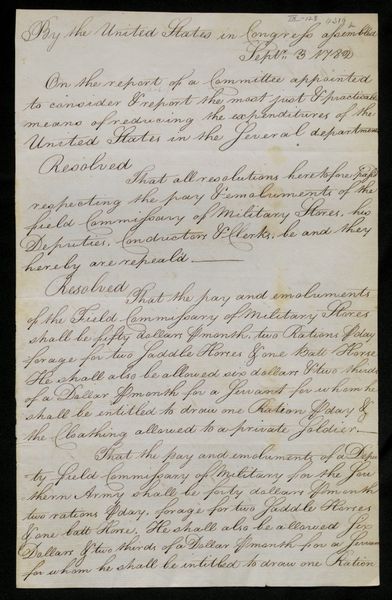 By the United States in Congress assembled
Septr. 3 1782
On the report of a Committee appointed
to consider & report the most just & practicable
means of reducing the expenditures of the
United States in the several departments
Resolved
That all resolutions heretofore pass'd
respecting the pay & emoluments of the
field Commissary of Military Stores, his
Deputies, Conductors & Clerks, be and they
hereby are repeal'd
Resolved
That the pay and emoluments
of the Field Commissary of Military Stores
shall be fifty dollars ⅌ month, two Rations ⅌ day
forage for two Saddle Horses & one Batt Horse
He shall also be allowed six dollars & two thirds
of a Dollar ⅌ month for a Servant for whom he
shall be intitled to draw one Ration ⅌ day &
the Cloathing allowed to a private Soldier
That the pay and emoluments of a Depu
ty field Commissary of Military for the Sou
thern Army shall be forty dollars ⅌ month
two rations ⅌ day, forage for two Saddle Horses
& one batt Horse. He shall also be allowed Six
Dollars & two thirds of a Dollar ⅌ month for a Servant
for whom he shall be intitled to draw one Ration